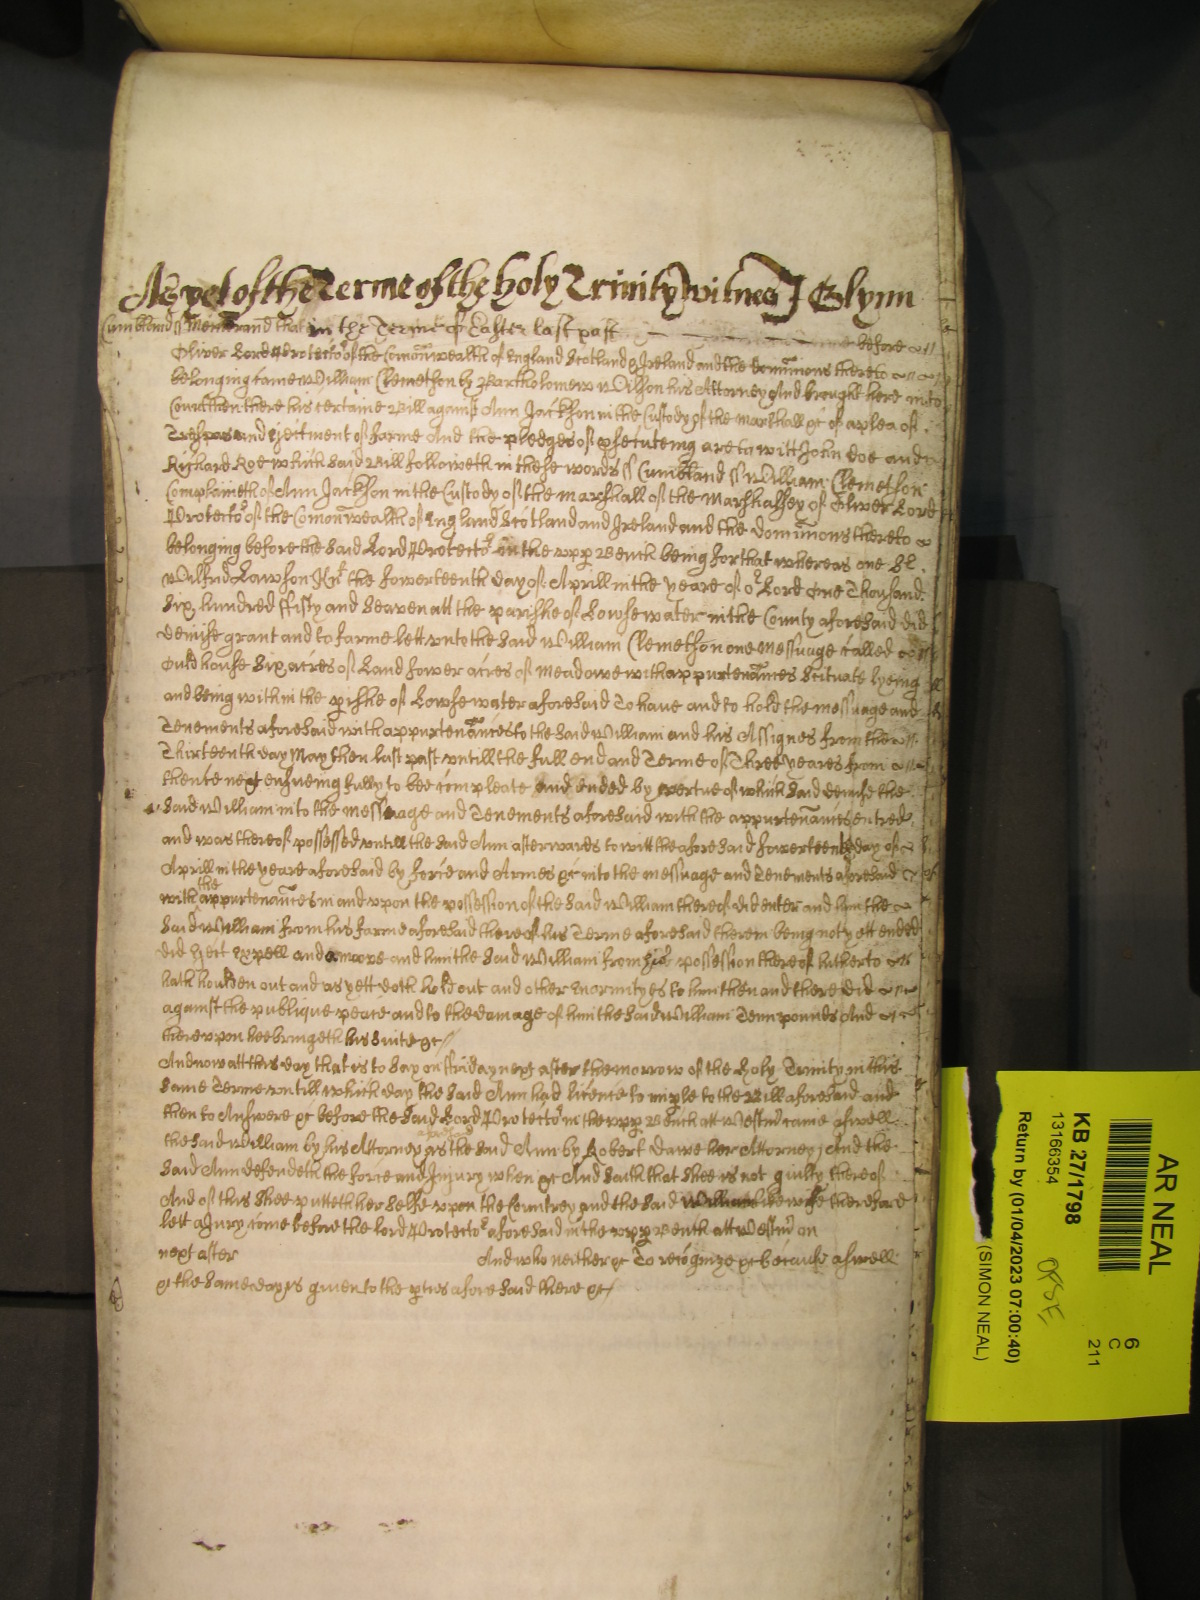 As yet of the Terme of the holy Trinity witnes J Glynn
Cumbland ss Memorand that in the Terme of Easter last past before
Oliver Lord Protector of the Comonwealth of England Scotland & Ireland and the dominions thereto
belonging came William Clemetson by Bartholomew Wilson his Attorney And brought here into
Court then there his certaine Bill against Ann Jackson in the Custody of the marshall &c of a plea of
Trespas and ejectment of farme And the pledges of psecuteing are to witt John Doe and
Richard Roe which said Bill followeth in these words ss Cumbland ss William Clemetson
Complaineth of Ann Jackson in the Custody of the marshall of the Marshalsey of Oliver Lord
Protector of the Comonwealth of England Scotland and Ireland and the dominions thereto
belonging before the said Lord Protector in the vpp Bench being for that whereas one Sr
Wilfrid Lawson Knt the fowerteenth day of Aprill in the yeare of or Lord one Thousand
Six hundred ffifty and Seaven att the parishe of Lowsewater in the County aforesaid did
demise grant and to farme lett vnto the said William Clemetson one messuage called
ould house Six acres of Land fower acres of meadowe with appurtenances Scituate lyeing
and being within the pishe of Lowsewater aforesaid To haue and to hold the messuage and
Tenements aforesaid with appurtenances to the said William and his Assignes from the
Thirteenth day May then last past vntill the full end and Terme of Three yeares from
thence next ensueing fully to bee compleate and ended by vertue of which said demise the
said William into the messuage and Tenements aforesaid with the appurtenances entred
and was thereof possessed vntill the said Ann afterwards to witt the aforesaid fowerteenth day of
Aprill in the yeare aforesaid by force and Armes &c into the messuage and Tenements aforesaid
with the appurtenances in and vpon the possession of the said William thereof did enter and him the
said William from his farme aforesaid thereof his Terme aforesaid therein being not yett ended
did eject expell and amove and him the said William from his possession thereof hitherto
hath houlden out and as yett doth hold out and other enormityes to him then and there did
against the publique peace and to the damage of him the said William Tenn pounds And
therevpon hee bringeth his suite &c
And now att this day that is to say on ffriday next after the morrow of the holy Trinity in this
same Terme vntill which day the said Ann had licence to imple to the Bill aforesaid and
then to Answere &c before the said Lord Protector in the vpp Bench att Westmr came aswell
the said William by his Attorney as the said Ann by Robert Dawe her Attorney And the
said Ann defendeth the force and Injury when &c And saith that shee is not guilty thereof
And of this shee putteth her selfe vpon the Countrey and the said William likewise therefore
lett a Jury come before the lord Protector aforesaid in the vpp Bench att Westmr on
next after And who neither &c To recognize &c because aswell
&c the same day is given to the pties aforesaid there &c
AR NEAL
KB 27/1798
13166354
Return by (01/04/2023 07:00:40)
(SIMON NEAL)
6
C
211